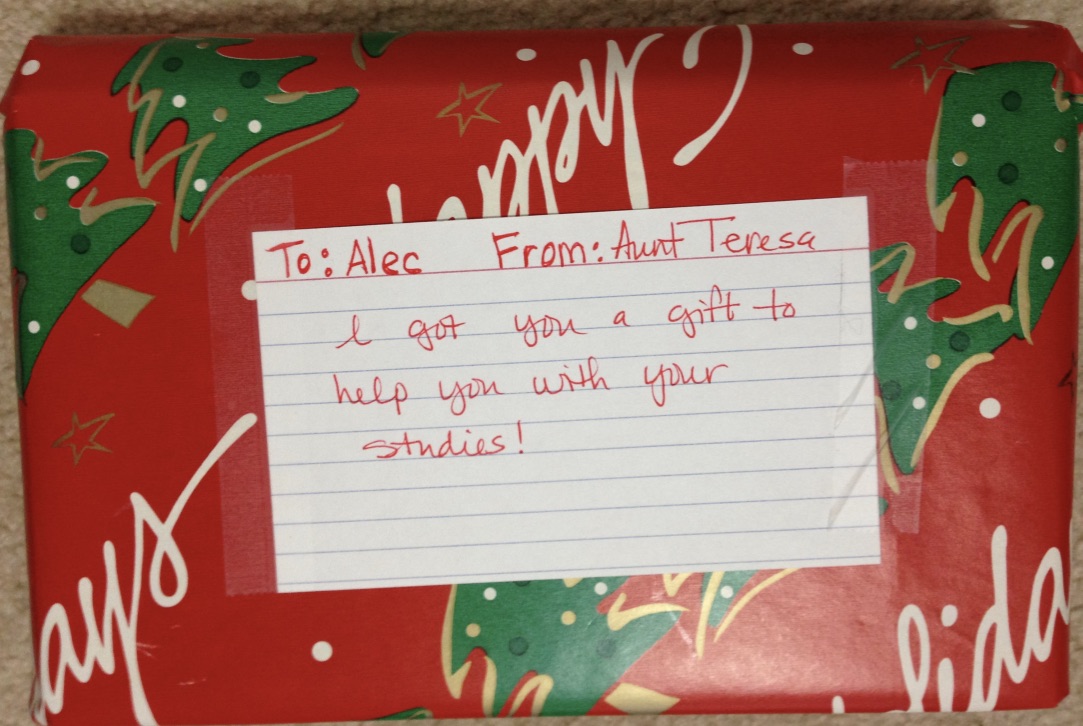 Happy
To: Alec From: Aunt Teresa
I got you a gift to
help you with your
studies!
ays
lida